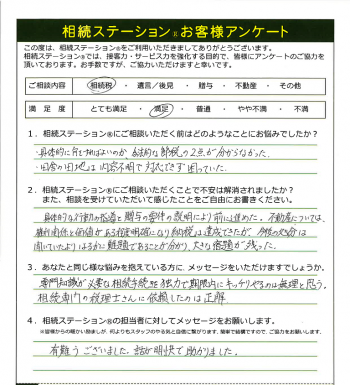 相続ステーション® お客様アンケート
この度は、相続ステーション®をご利用いただきましてありがとうございます。
相続ステーション®では、接客力・サービス力を強化する目的で、皆様にアンケートのご協力を
頂いております。お手数ですが、ご協力いただけますと幸いです。
ご相談内容 相続税 ・ 遺言／後見 ・ 贈与 ・ 不動産 ・ その他
満足度 とても満足 ・ 満足 ・ 普通 ・ やや不満 ・ 不満
1．相続ステーション®にご相談いただく前はどのようなことにお悩みでしたか？
・具体的に何をすればよいのか、合法的な節税の2点が分からなかった。
・田舎の田地は内容不明で対応できず困っていた。
2．相続ステーション®にご相談いただくことで不安は解消されましたか？
また、相談を受けていただいて感じたことをご自由にお書きください。
具体的な行動の指導と贈与の要件の説明により前に進めた。不動産については、
権利関係と価値がある程度明確になり納税は達成できたが、今後の処分は
聞いていたよりはるかに難題であることが分かり、大きな宿題が残った。
3．あなたと同じ様な悩みを抱えている方に、メッセージをいただけますでしょうか。
専門知識が必要な相続手続を独力で期限内にキッチリやるのは無理と思う。
相続専門の税理士さんに依頼したのは正解
4．相続ステーション®の担当者に対してメッセージをお願いします。
※皆様からの暖かい励ましが、何よりもスタッフのやる気と自信に繋がります。簡単で結構ですので、ご協力をお願いします。
有難うございました。話が明快で助かりました。